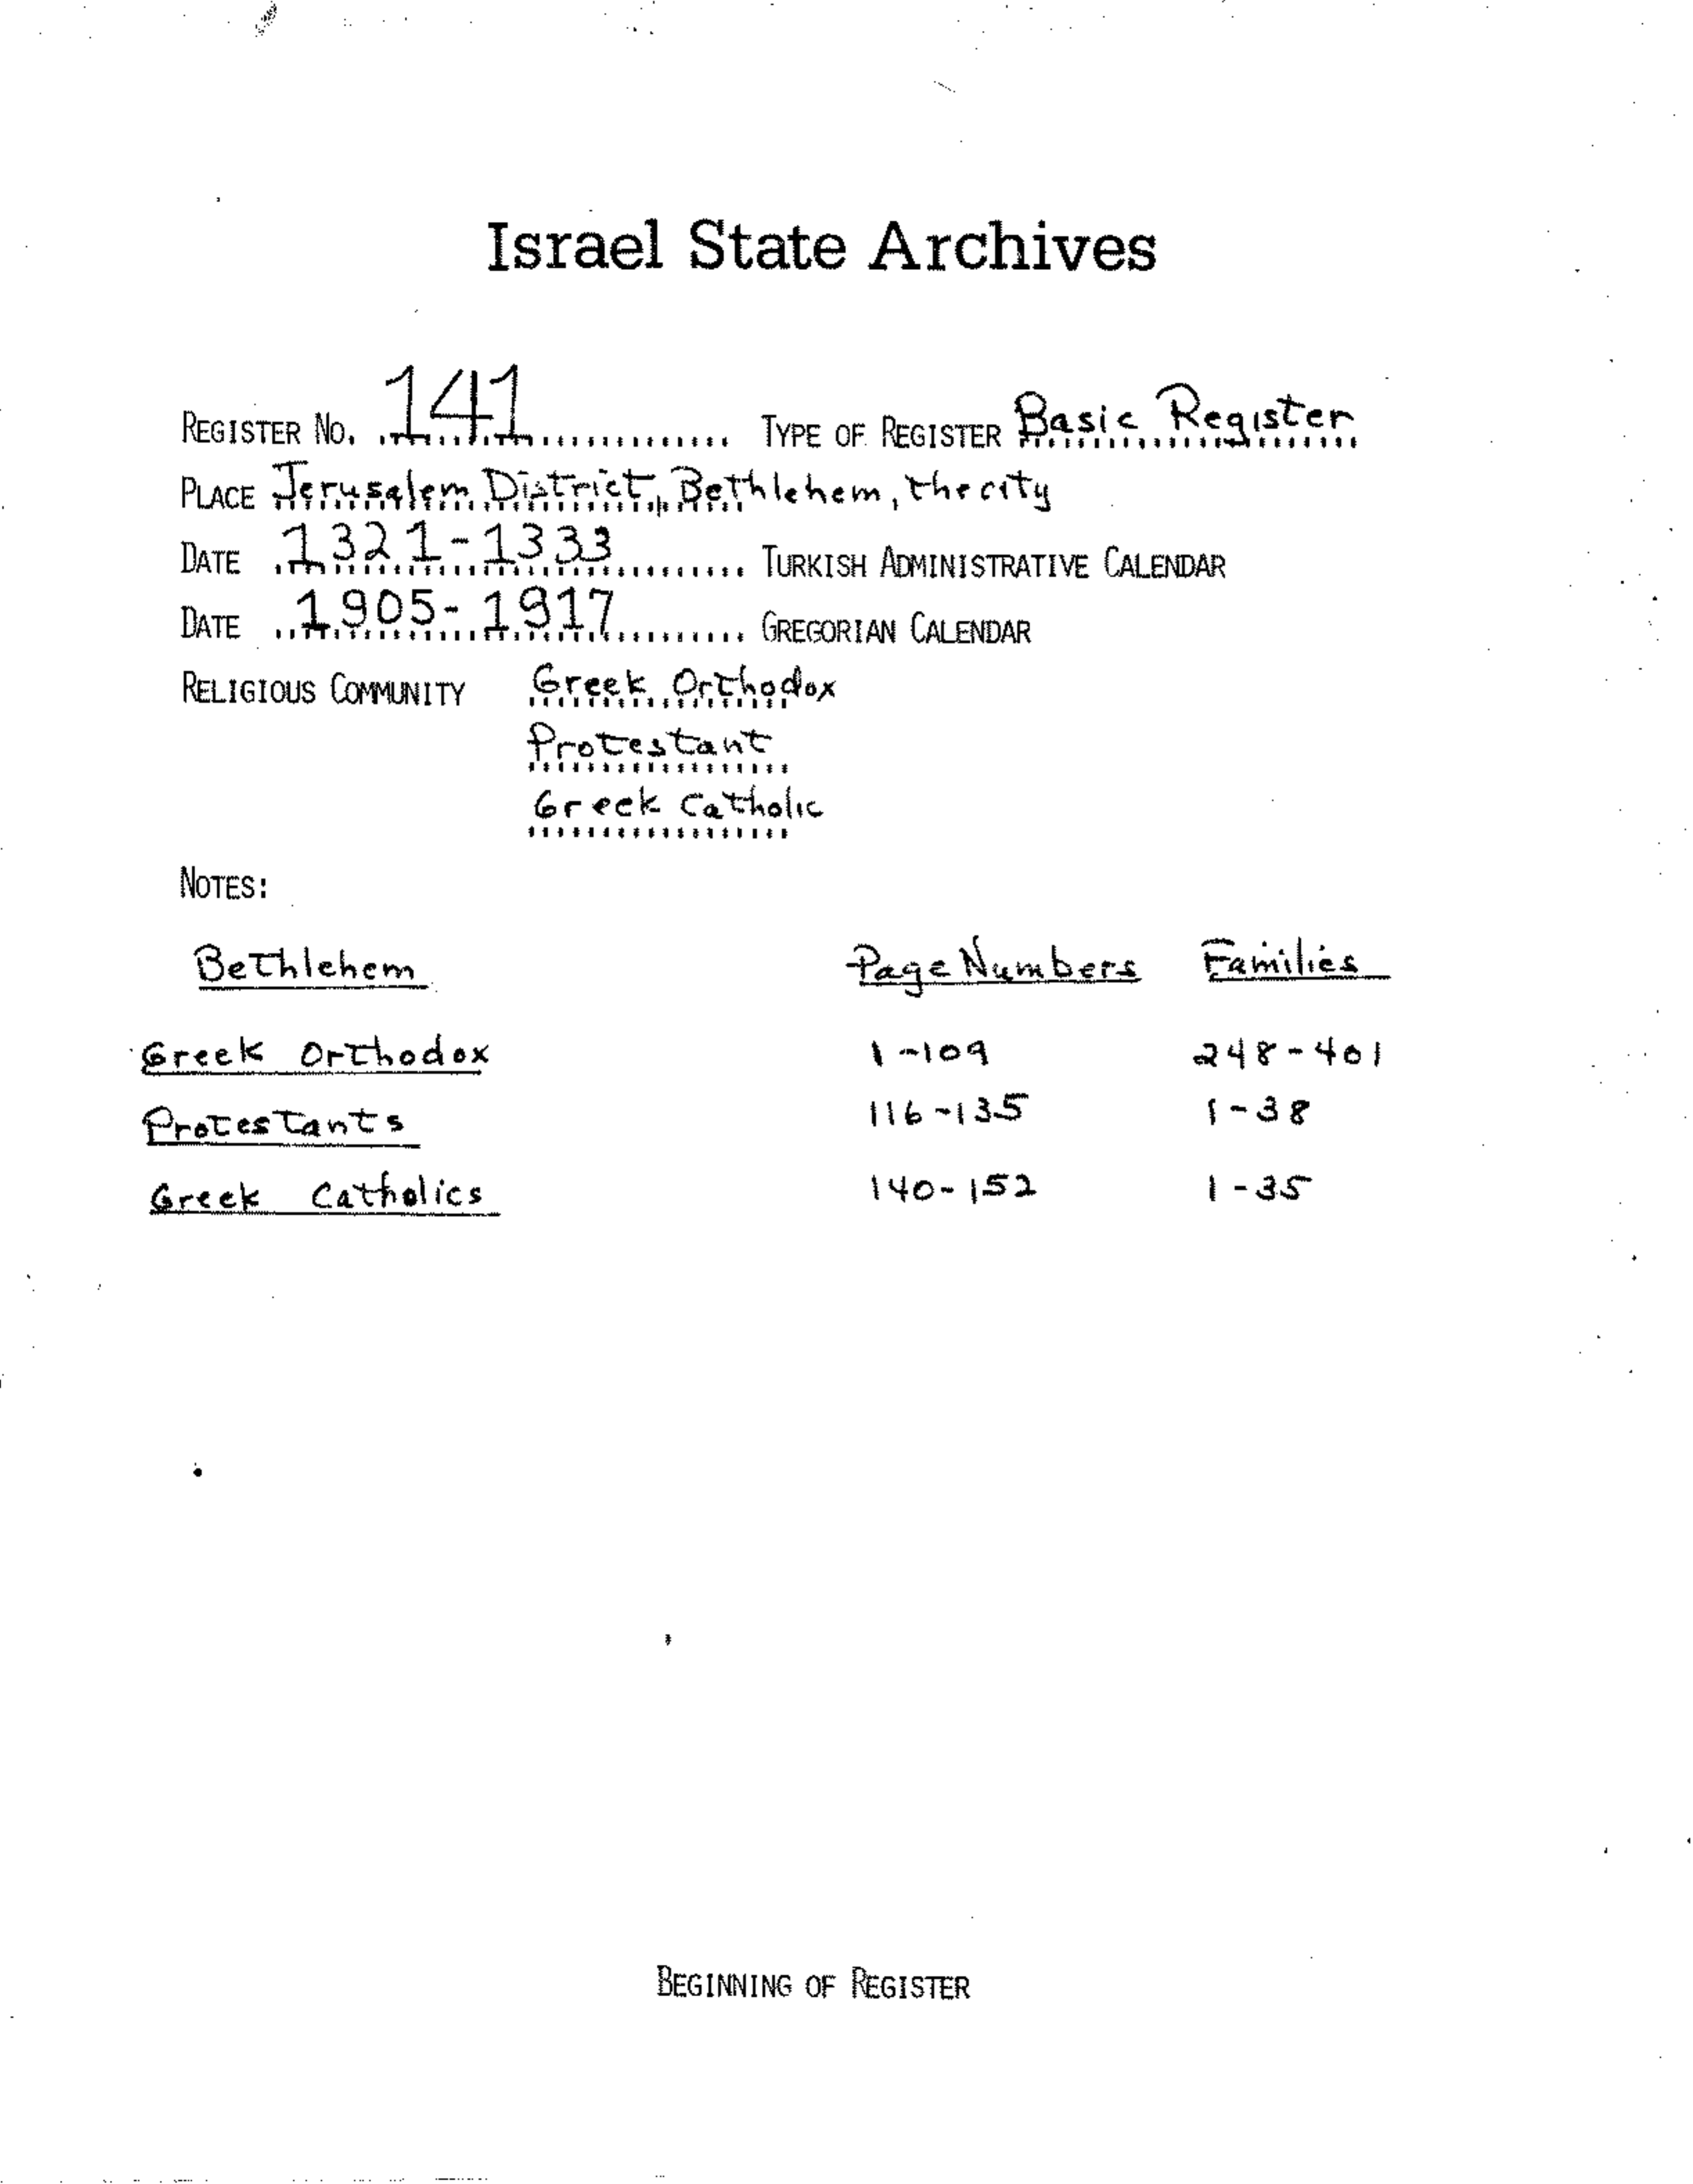 Israel State Archives
REGISTER NO. 141 TYPE OF REGISTER Basic Register
PLACE Jerusalem District, Bethlehem, the city
DATE 1321-1333 TURKISH ADMINISTRATIVE CALENDAR
DATE 1905-1917 GREGORIAN CALENDAR
RELIGIOUS COMMUNITY Greek Orthodox
Protestant
Greek Catholic
NOTES:
Bethlehem Page Numbers Families
Greek Orthodox 1-109 248-401
Protestants 116-135 1-38
Greek Catholics 140-152 1-35
BEGINNING OF REGISTER